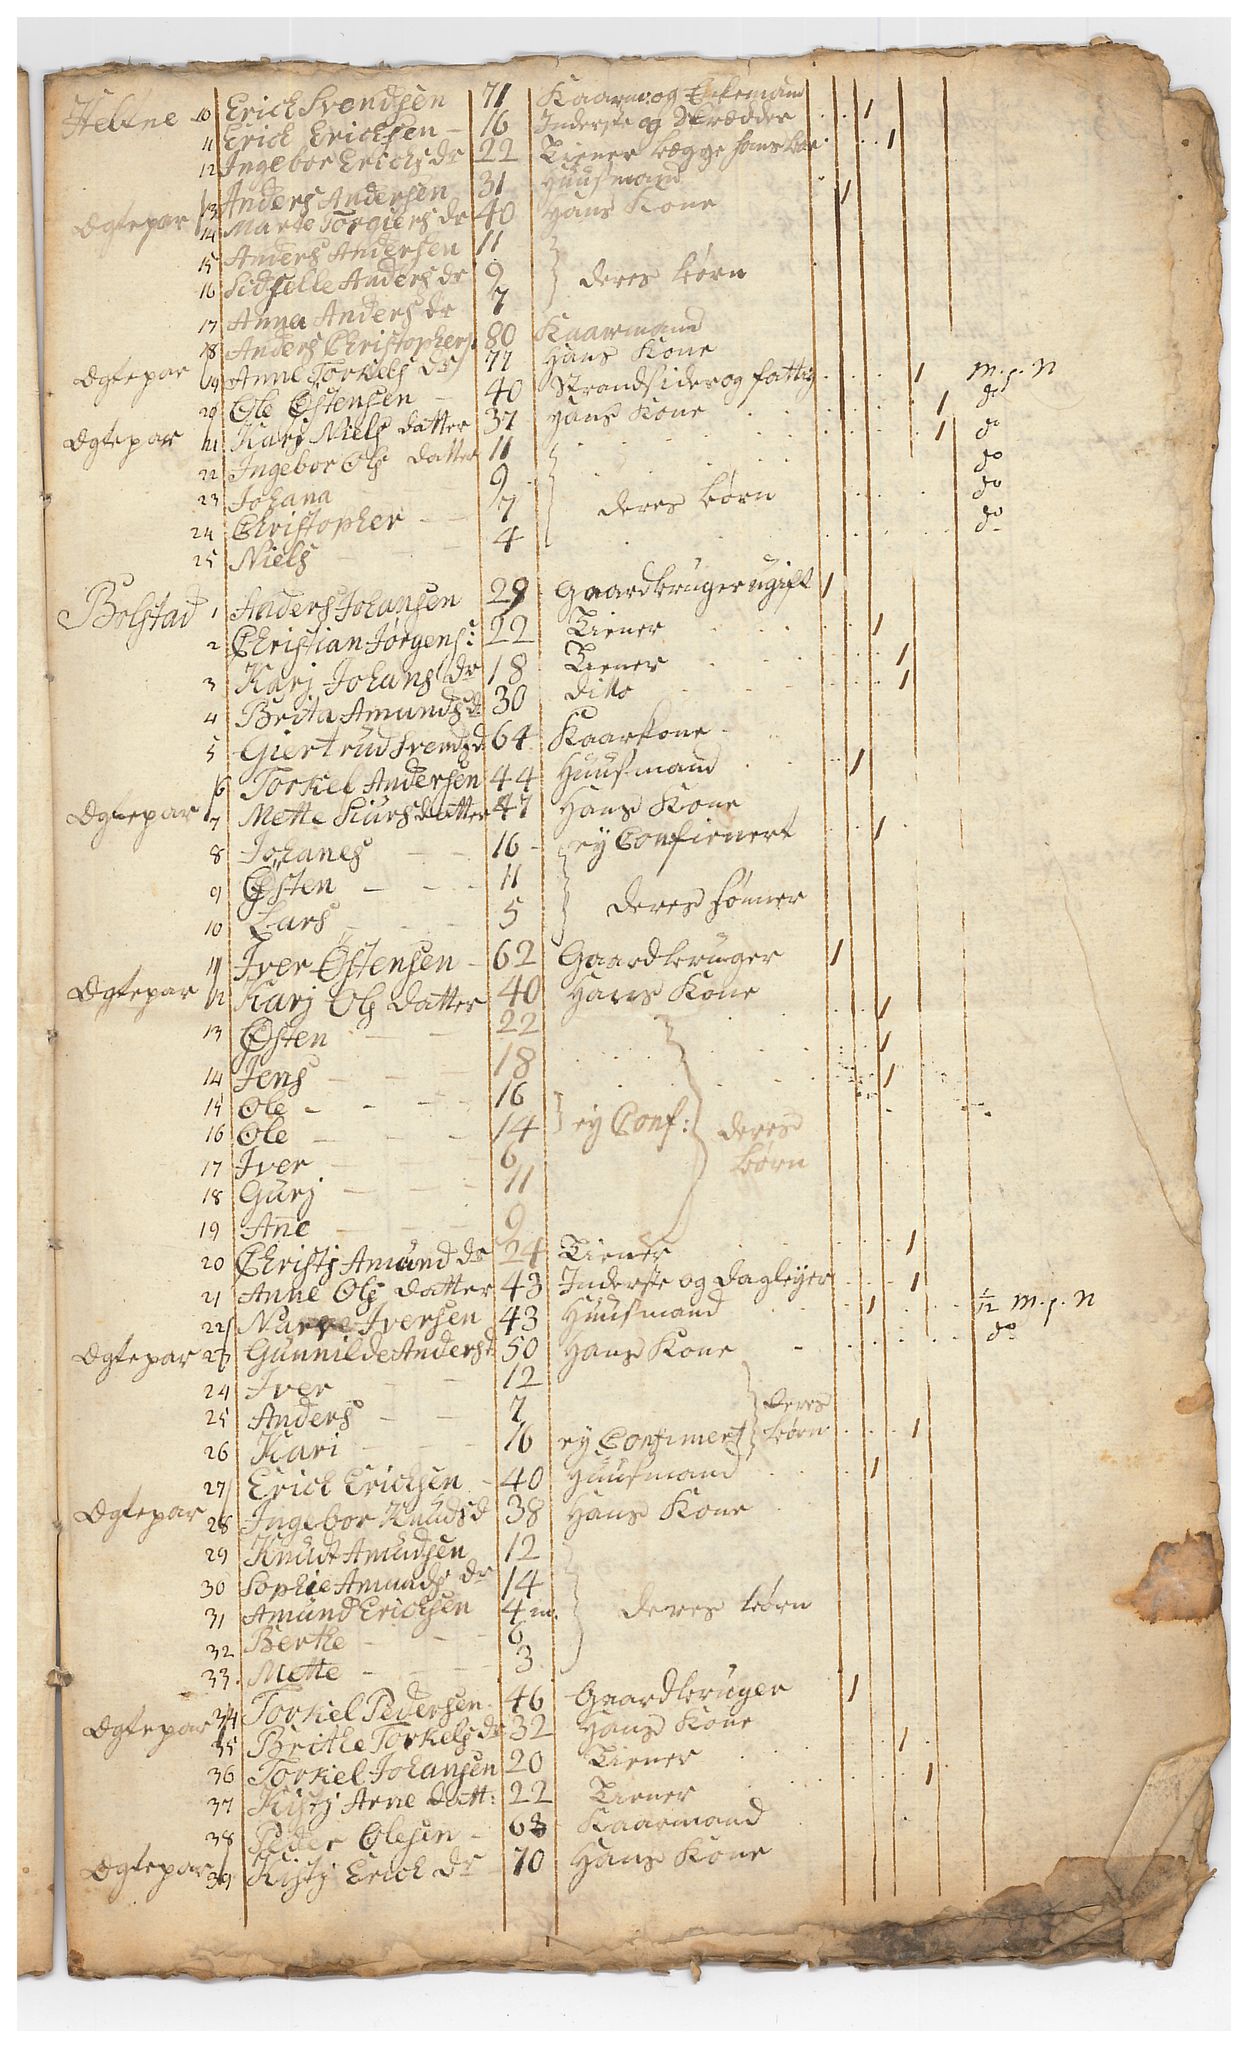 Helene 10 Erich Svendsen 71 Kaarm: og Enkemand
11 Erich Erichsen - 16 Inderste og Skrædder 1
12 Ingebor Erichs dr 22 Tiener begge hans bør 1
13 Anders Andersen 31 Huusmand 1
Ægtepar 14 Marte Torgiers dr 40 Hans Kone
15 Anders Andersen 11
16 Sidselle Anders dr 9 deres børn
17 Anna Anders dr 7
18 Anders Christophers: 80 Kaarmand
Ægtepar 19 Anne Torkels dr 77 Hans Kone
20 Ole Østensen - 40 Strandsider og fattig 1 m. s. n
Ægtepar 21 Karj Niels datter 37 Hans Kone 1 do
22 Ingebor Ols datter 11 1 do
23 Johana 9 do
24 Christopher - - 7 deres børn do
25 Niels - - - 4 do
Bolstad 1 Anders Johansen 29 Gaardbruger ugift 1
2 Christian Jørgens: 22 Tiener 1
3 Karj Johans dr 18 Tiener 1
4 Brita Amunds d 30 ditto 1
5 Giertrud Svends d 64 Kaarkone
6 Torkel Andersen 44 Huusmand 1
Ægtepar 7 Mette Siurs datter 47 Hans Kone
8 Johanes - - 16 - ey Confienert 1
9 Østen - - - 11
10 Lars - - - 5 deres sønner
11 Iver Østensen - 62 Gaardbruger 1
Ægtepar 12 Karj Ols datter 40 Hans Kone
13 Østen - - 22 1
14 Jens - - - 18 1
15 Ole - - - - 16 1
16 Ole - - - 14 ey Conf: deres
17 Iver - - - 6 børn
18 Gurj - - - 11
19 Ane - - - 9
20 Christj Amund dr 24 Tiener 1
21 Anne Ols datter 43 Inderste og dagleyer 1
22 Iversen 43 Huusmand 1 1/12 m. s. n
Ægtepar 23 Gunnilde Anders d 50 Hans Kone - do
24 Iver - - 12
25 Anders - - 7 deres
26 Kari - - - 16 ey Confimert børn 1
27 Erich Erichsen - 40 Huusmand 1
Ægtepar 28 Ingebor Knuds d 38 Hans Kone
29 Knudt Amudsen 12
30 Sophie Amunds dr 14
31 Amund Erichsen 4 m. deres børn
32 Berthe - - - 6
33. Mette - - - 3
34 Torkel Pedersen. 46 Gaardbruger 1
Ægtepar 35 Brithe Torkels dr 32 Hans Kone
36 Torkel Johansen 20 Tiener 1
37 Kistj Arne datt: 22 Tiener 1
38 Peder Olesen - 68 Kaarmand
Ægtepar 39 Kistj Erich dr 70 Hans Kone